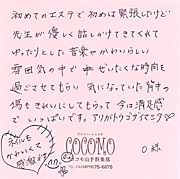 初めてのエステで初めは緊張したけど
先生が優しく話しかけてきてくれて
ゆったりとした音楽やかわいらしい
雰囲気の中でぜいたくな時間を
過ごさせてもらい 気になっていた背中の
傷もきれいにしてもらって今は満足感で
いっぱいです。アリガトウゴザイマシタ♡
O様
ネイルも
かわいくて
感激です
プライベートエステ
COCOMO
ココモ山手倶楽部
75-6675